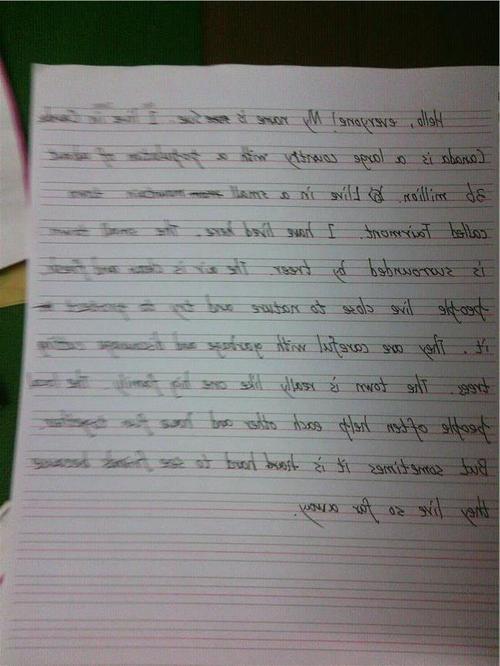 Hello, everyone! My name is Sve. I live in
Canada is a large country with a population of about
36 million. I live in a small mountain town
called Tairmont. I have lived here. The small town
is surrounded by trees. The air is clean and fresh
people live close to nature and try to protect
it. They are careful with garbage and cutting
trees. The town is really like one big family. The local
people often help each other and have fun together.
But sometimes it is hard to see friends because
they live so far away.